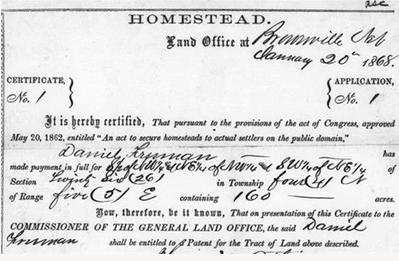 HOMESTEAD.
Land Office at Brownville Neb
January 20th 1868.
CERTIFICATE, No. 1
APPLICATION, No. 1
It is hereby certified, That pursuant to the provisions of the act of Congress, approved
May 20, 1862, entitled "An act to secure homesteads to actual settlers on the public domain,"
Daniel Freeman has
made payment in full for of NW¼ & SW¼ of NE¼ of
Section Twenty Six (26) in Township four (4) N
of Range five (5) E containing 160 acres.
Now, therefore, be it known, That on presentation of this Certificate to the
COMMISSIONER OF THE GENERAL LAND OFFICE, the said Daniel
Freeman shall be entitled to a Patent for the Tract of Land above described.